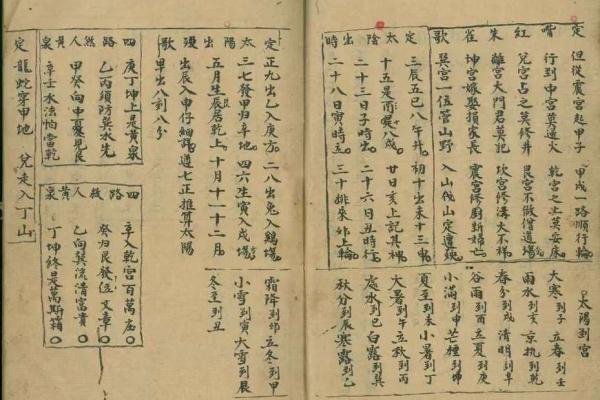 定嘴紅朱雀歌
但從震宮起甲子 甲戌一路順行輪
行到中宮莫遭火 乾宮之上莫安床
兌宮占之莫修井 艮宮不做僧道場
離宮大門君莫記 坎宮修溝大不祥
坤宮嫁娶損家長 震宮修廚新婦亡
巽宮一位管山野 入山伐山定遭殃
定太陰出時
三辰五巳八午升 初十出未十三申
十五是酉八戌 廿日亥上記其神
二十三日子時出 二十六日丑時行
二十八日寅時立 三十排來卯上輪
太陽到宮
大寒到子 立春到壬
雨水到亥 京执到乾
春分到戌 清明到辛
谷雨到酉 立夏到庚
小滿到申 芒種到坤
夏至到未 小暑到丁
大暑到午 立秋到丙
處水到巳 白露到巽
秋分到辰 寒露到乙
定太陽出歌
正九出乙入庚方 二八出兔入鷄場
三七發甲歸辛地 四六生寅入戌場
五月生辰居乾上 十月十一十二月
出辰入申仔細詳 遵七正推算太陽
早出八刻八分
霜降到卯 立冬到甲
小雪到寅 大雪到艮
冬至到丑
四路煞人黃泉
庚丁坤上是黃泉
乙丙須防巽水先
甲癸向中憂見艮
辛壬水法怕當乾
四路救人黃泉
辛入乾宮百萬庄
癸歸艮發位文章
乙向巽流清富貴
丁坤終是萬斯箱
定龍蛇穿甲地 兌走入丁山